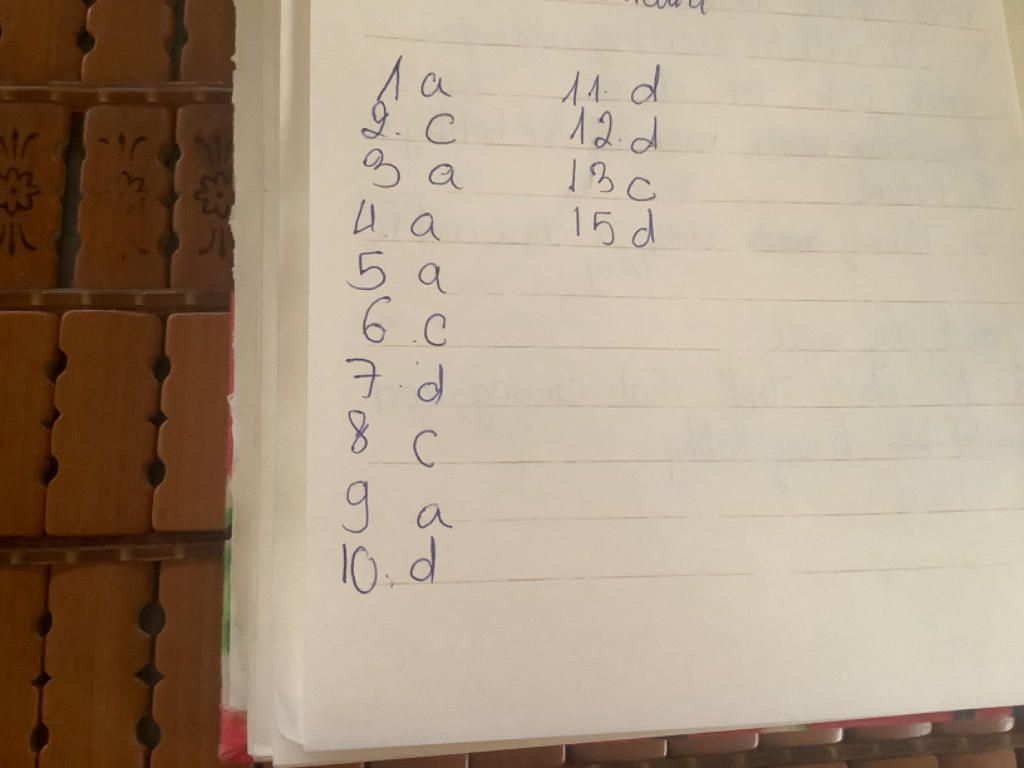 1 a
2. c
3 a
4. a
5 a
6. c
7. d
8 c
9 a
10. d
11. d
12. d
13 c
15 d